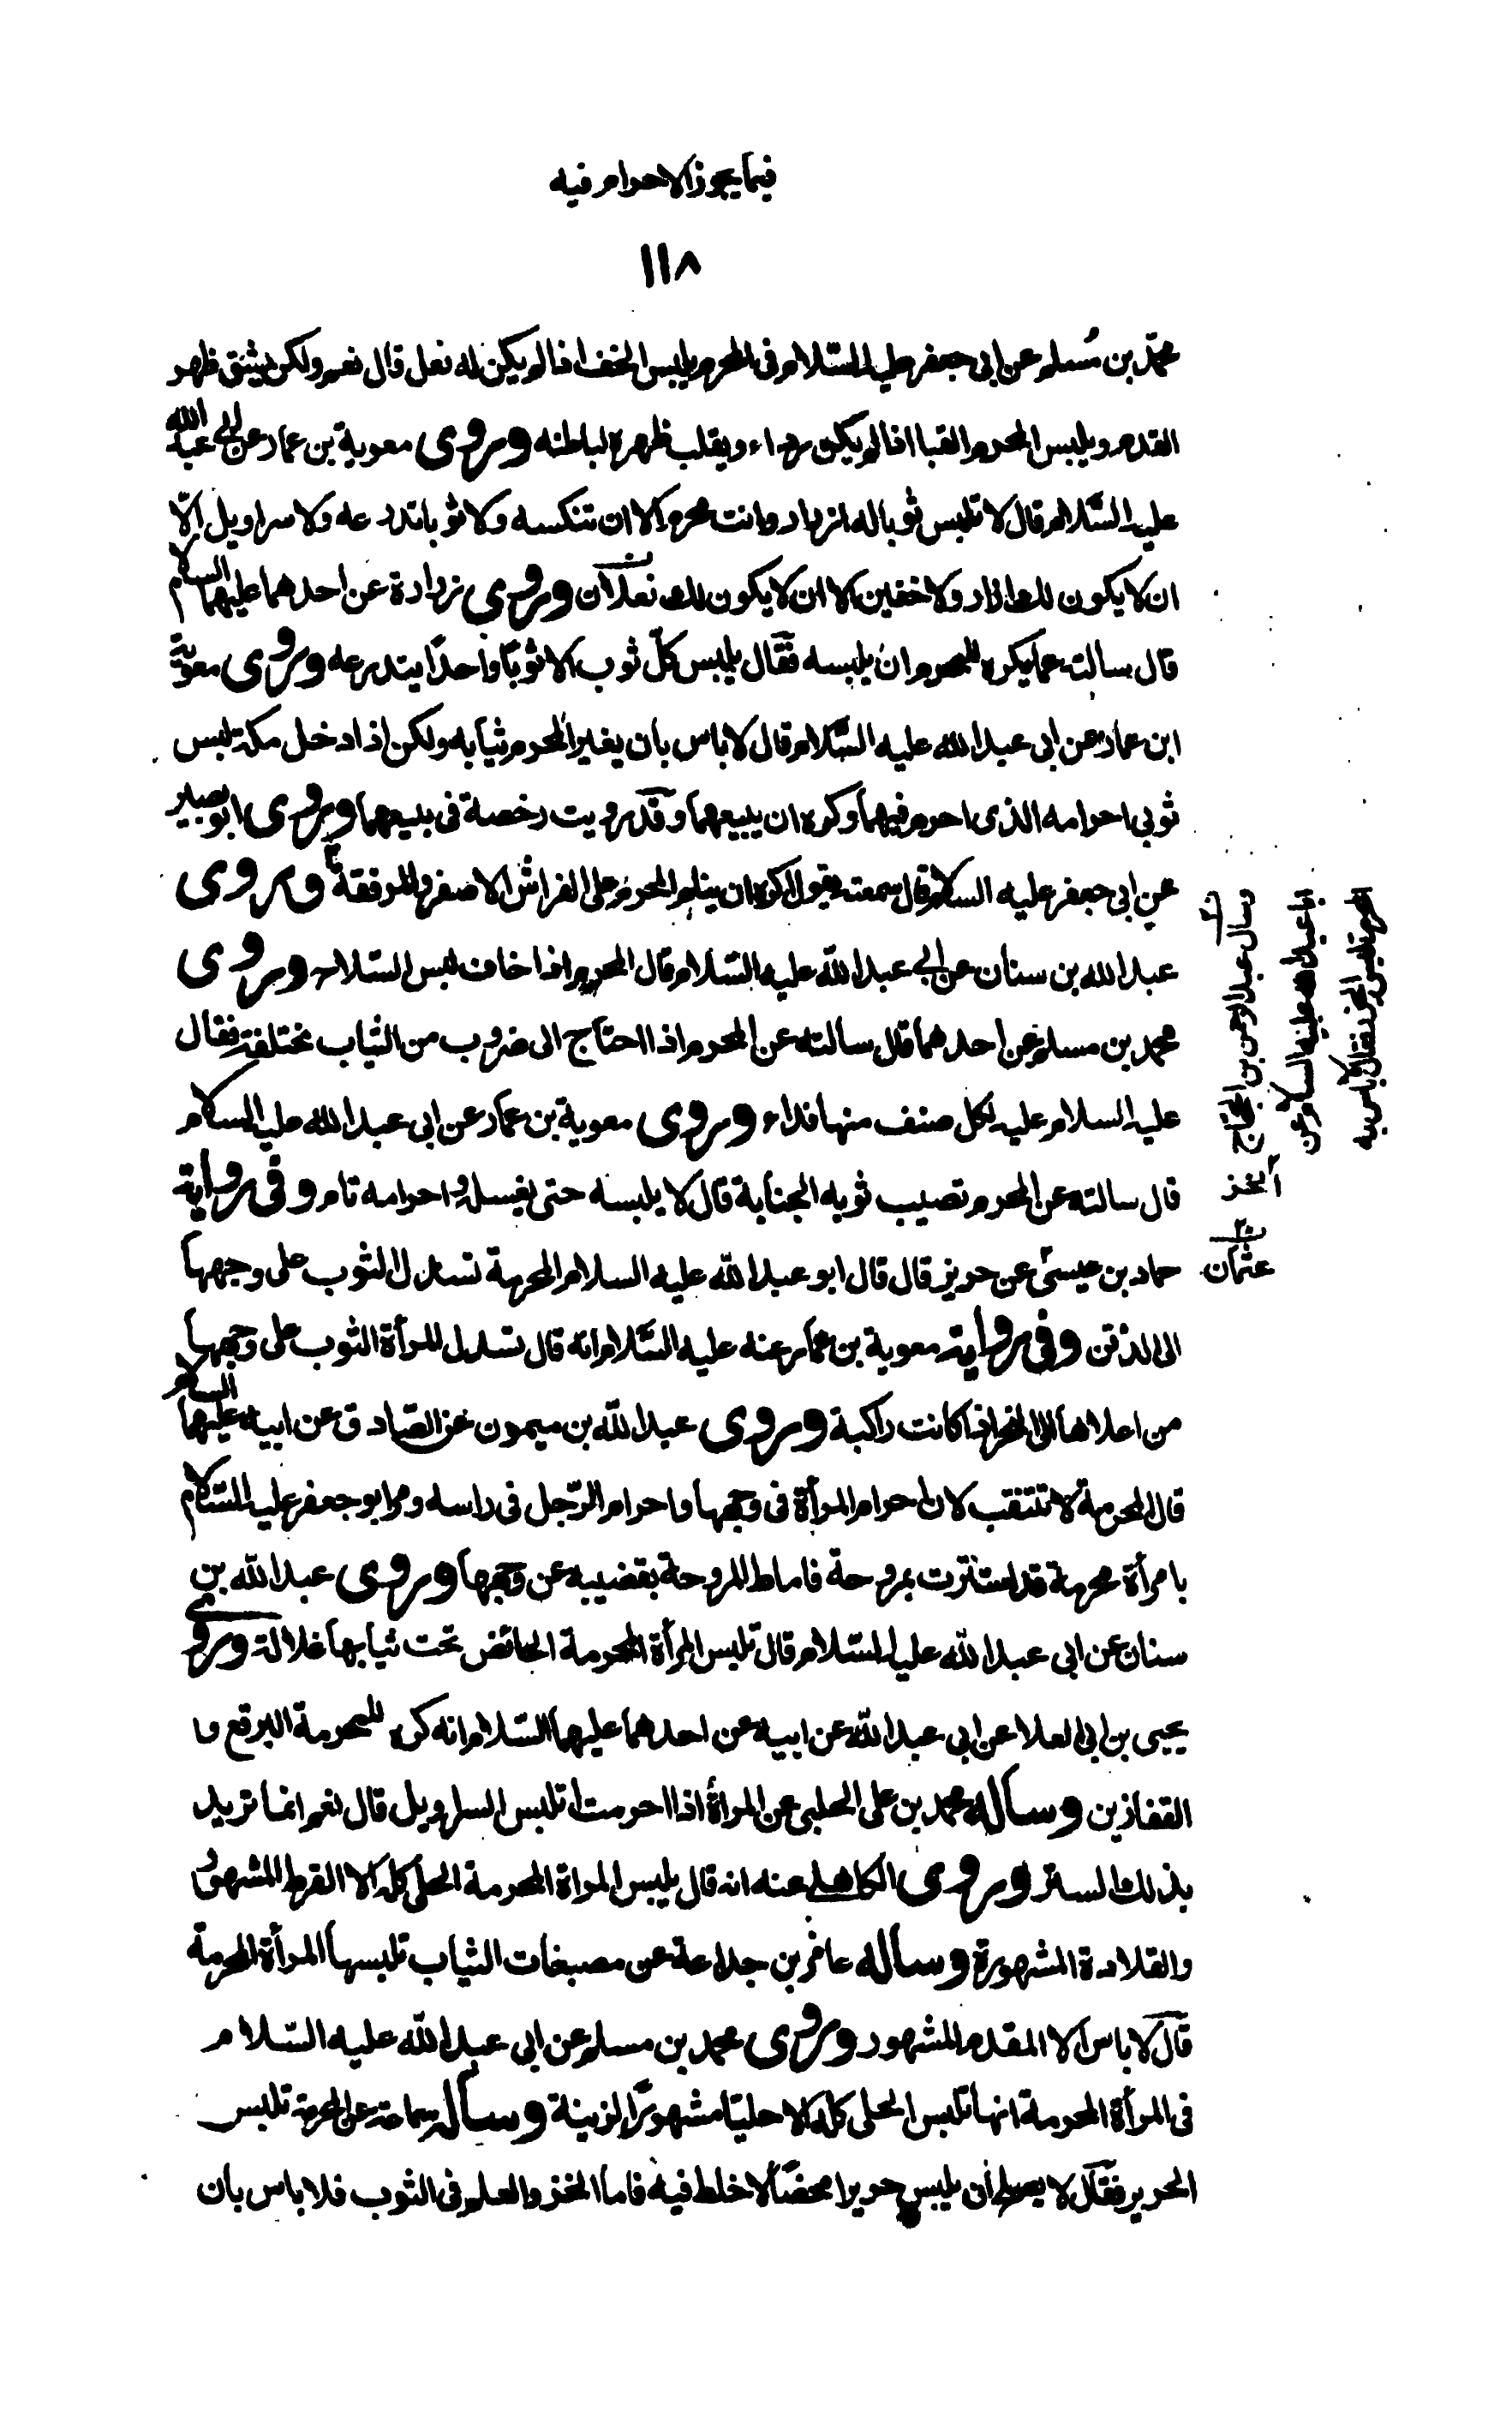 فيما يجوز الاحرام فيه
١١٨
محمّد بن مُسلم عن ابى جعفر عليه السّلام فى المحرم يلبس الخف اذا لم يكن له نعل قال نعم ولكن يشق ظهر
القدم ويلبس المحرم القبا اذا لم يكن له رداء ويقلب ظهره لباطنه وروى معوية بن عمار عن ابى عبد الله
عليه السّلام قال لا تلبس ثوبا له ازرار وانت محرم الا ان تنكسه ولا ثوبا تدرعه ولا سراويل الّا
ان لا يكون لك ازار ولا خفين الا ان لا يكون لك نعلان وروى زرارة عن احدهما عليهما السلام
قال سالته عما يكره للمحرم ان يلبسه فقال يلبس كلّ ثوب الا ثوبًا واحدًا يتدرعه وروى معوية
ابن عمار عن ابى عبد الله عليه السّلام قال لا باس بان يغير المحرم ثيابه ولكن اذا دخل مكة لبس
ثوبى احرامه الذى احرم فيهما وكره ان يبيعهما وقد رويت رخصة فى بيعهما وروى ابو بصير
عن ابى جعفر عليه السلام قال سمعته يقول اكره ان ينام المحرم على الفراش الاصفر والمرفقة وروى
عبد الله بن سنان عن ابى عبد الله عليه السّلام قال المحرم اذا خاف لبس السّلاح وروى
محمد بن مسلم عن احدهما قال سالته عن المحرم اذا احتاج الى ضروب من الثياب مختلفة فقال
عليه السلام عليه لكل صنف منها فداء وروى معوية بن عمّار عن ابى عبد الله عليه السلام
قال سالته عن المحرم تصيب ثوبه الجنابة قال لا يلبسه حتى يغسله واحرامه تام وفى رواية
حماد بن عيسى عن حريز قال قال ابو عبد الله عليه السلام المحرمة تسدل الثوب على وجهها
الى الذقن وفى رواية معوية بن عمار عنه عليه السّلام انه قال تسدل المرأة الثوب على وجهها
من اعلاها الى النحر اذا كانت راكبة وروى عبد الله بن ميمون عن الصّادق عن ابيه عليهما السلام
قال المحرمة لا تتنقب لان احرام المرأة فى وجهها واحرام الرّجل فى راسه ومر ابو جعفر عليه السّلام
بامرأة محرمة قد استترت بمروحة فاماط المروحة بقضيبه عن وجهها وروى عبد الله بن
سنان عن ابى عبد الله عليه السّلام قال تلبس المرأة المحرمة الحائض تحت ثيابها غلالة وروى
يحيى بن ابى العلا عن ابى عبد الله عن ابيه عن احدهما عليهما السّلام انه كره للمحرمة البرقع و
القفازين وساله محمد بن على الحلبى عن المراة اذا احرمت اتلبس السراويل قال نعم انما تريد
بذلك الستر وروى الكاهلى عنه انه قال يلبس المراة المحرمة الحلى كله الا القرط المشهور
والقلادة المشهورة وساله عامر بن جذاعة عن مصبغات الثياب تلبسها المرأة المحرمة
قال لا باس الا المقدم المشهور وروى محمد بن مسلم عن ابى عبد الله عليه السّلام
فى المرأة المحرمة انها تلبس الحلى كله الا حليا مشهورًا لزينة وساله سماعة عن المحرمة تلبس
الحرير فقال لا يصلح أن يلبس حريرا محضًا لا خلط فيه فاما الخز والعلم فى الثوب فلا باس بان
وسال عبد الرحمن بن الحجاج
ابا عبد الله عليه السلام عن
المحرمة تلبس الخز فقال لا باس به
الخز
عثمان